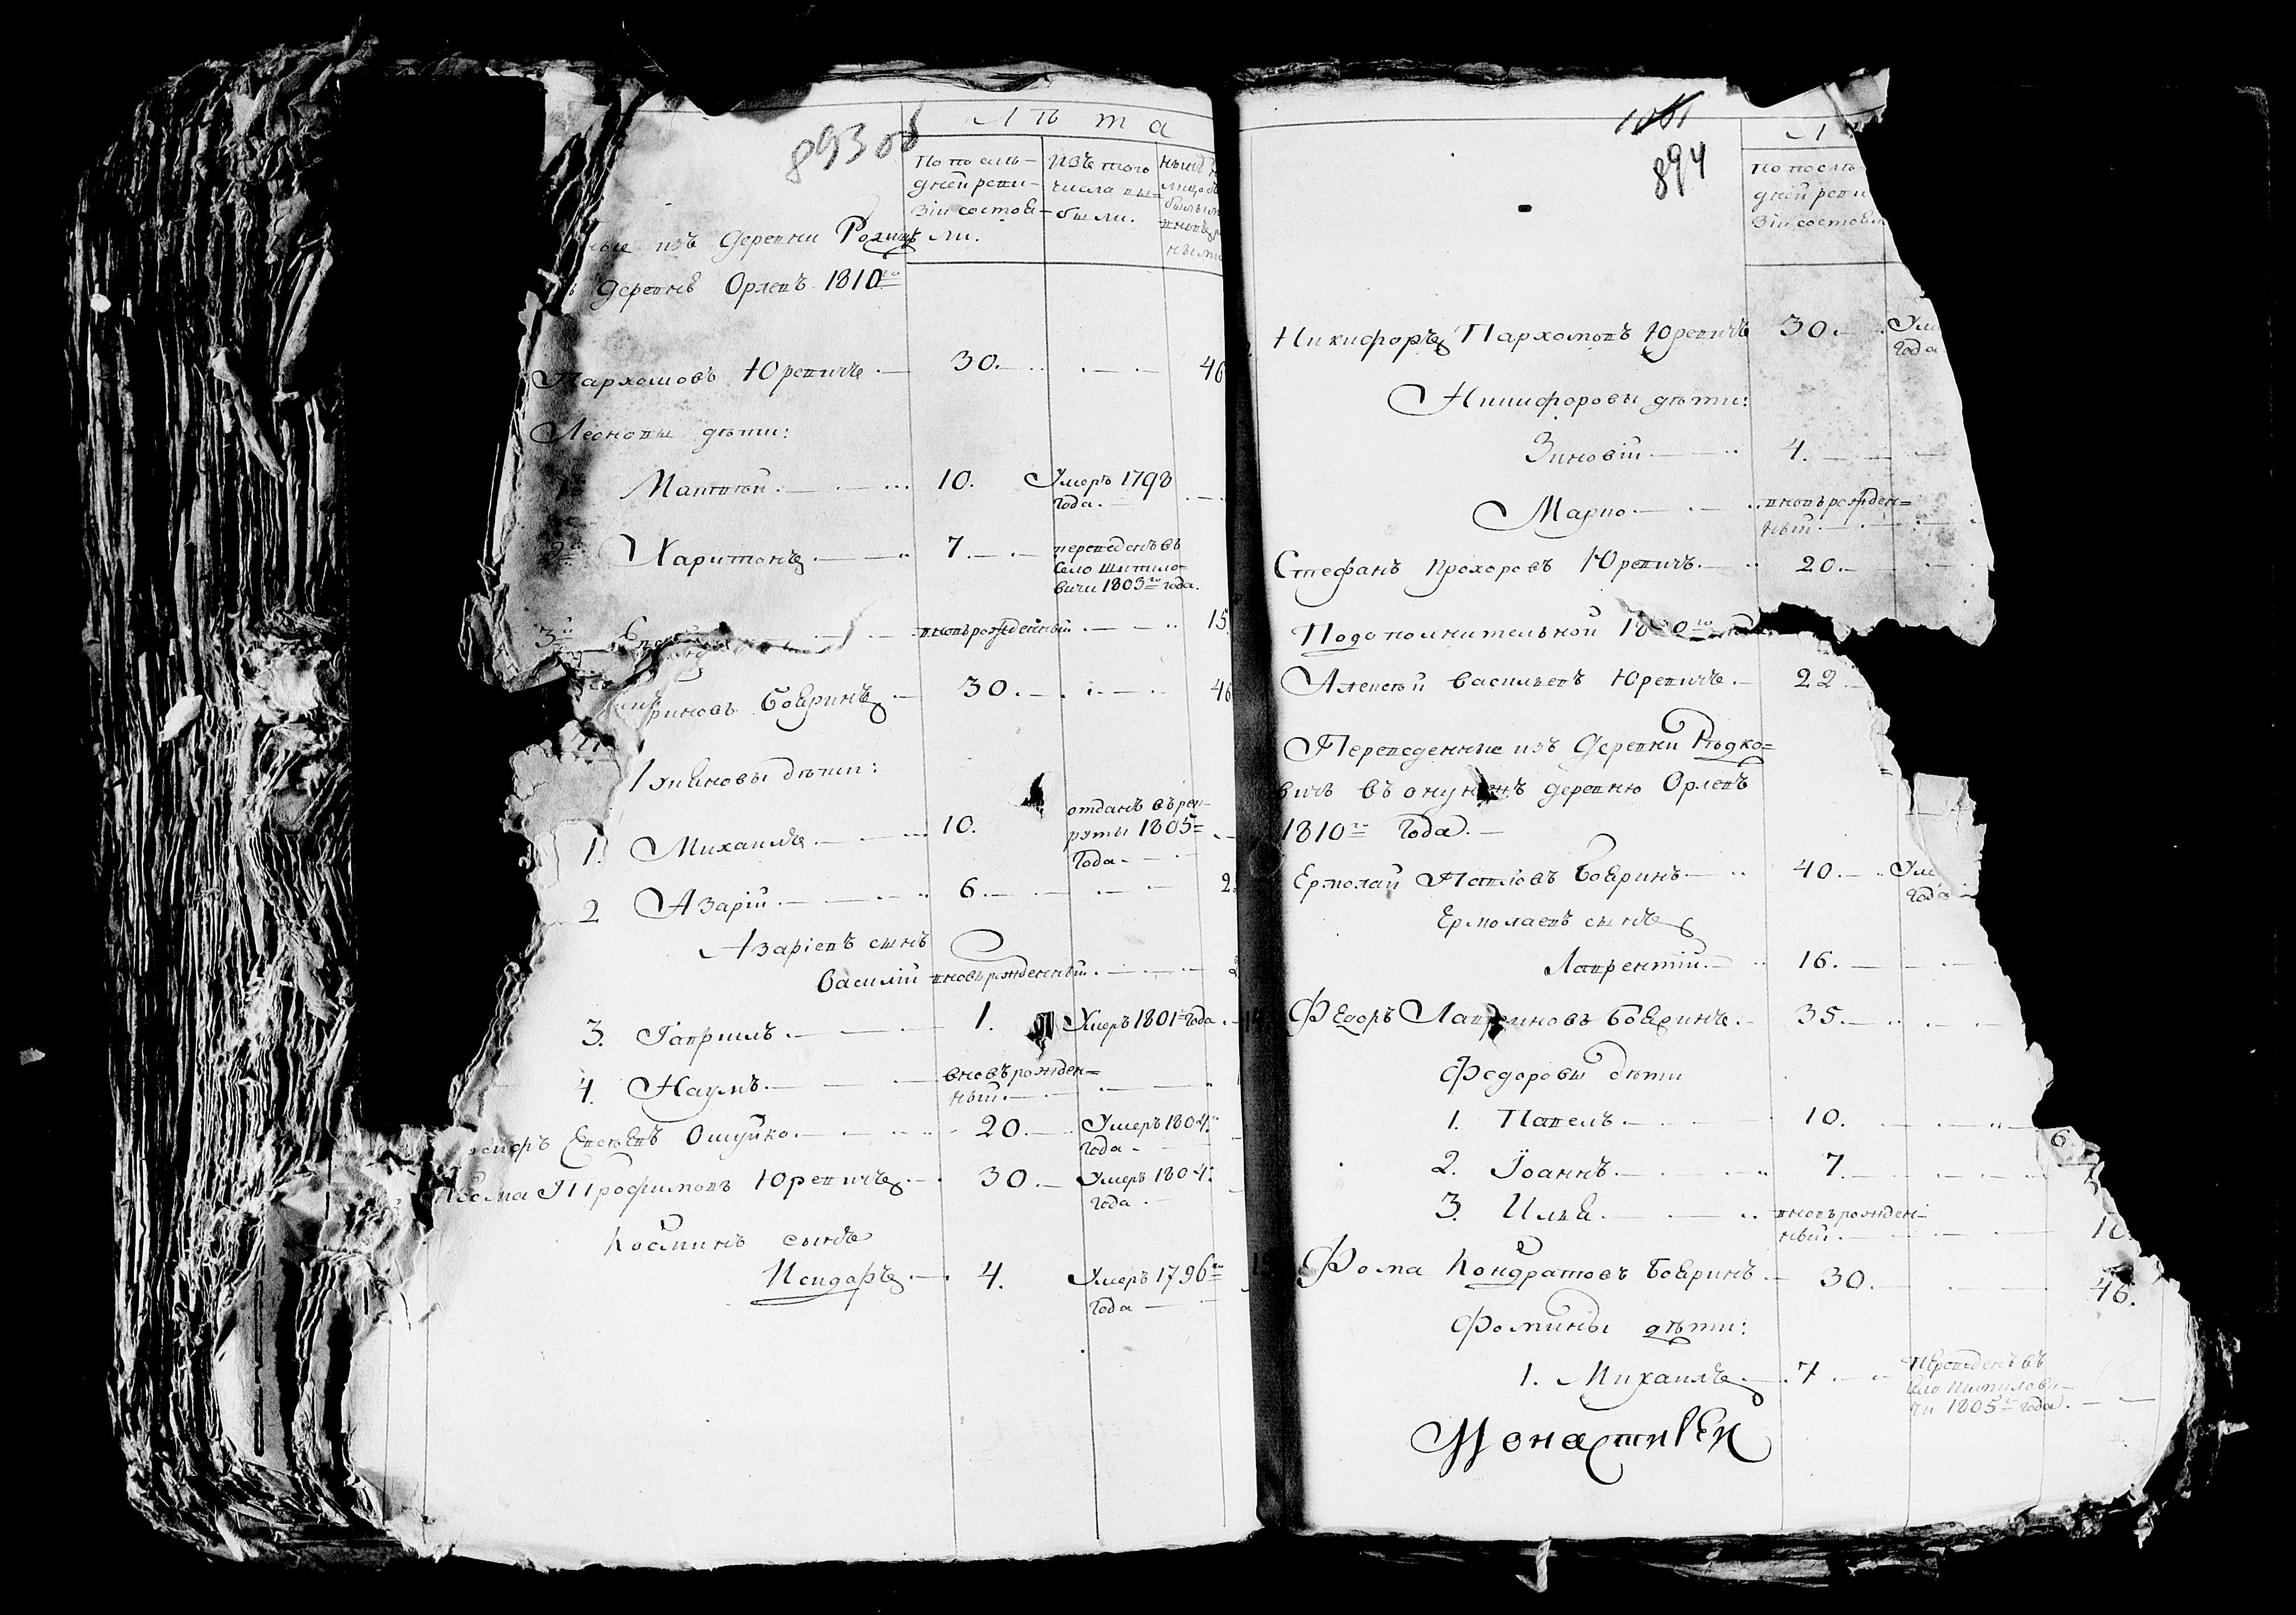 893 об
Лѣта
По послѣ-
дней реви-
зіи состоя-
ли.
Изъ того
числа вы-
были.
изъ деревни
деревнѣ Орлевъ 1810го
Пархомовъ Юревичъ 30. 46
Леоновы дѣти:
Матвѣй 10. Умеръ 1798
года.
2й Харитонъ 7. переведенъ въ
село Шитило-
вичи 1803го года.
3й вновърожденный 15.
Бовринъ 30. 46
дѣти:
1. Михаилъ 10. отданъ въ рек-
руты 1805
года
2 Азарій 6.
Азаріевъ сынъ
Василій вновърожденный
3. Гаврилъ 1. Умеръ 1801 года
4. Наумъ вновърожден-
ный
Евсѣевъ Ошуйко 20. Умеръ 1804
года
Трофимовъ Юревичъ 30. Умеръ 1804
года
Косминъ сынъ
Исидоръ 4. Умеръ 1796го
года
894
Л
По послѣ-
дней реви
зіи состоял
Никифоръ Пархомовъ Юревичъ 30. Уме
года
Никифоровы дѣти:
Зиновій 4.
Марко вновърожден-
ный
Стефанъ Прохоровъ Юревичъ 20.
Подополнительной
Алексѣй Васильевъ Юревичъ 22
Переведенные изъ деревни Рѣдко-
вичъ въ онуюжъ деревню Орлевъ
1810го года.
Ермолай Павловъ Бовринъ 40. Уме
года
Ермолаевъ сынъ
Лаврентій 16.
Федоръ Лавриновъ Бовринъ 35.
Федоровы дѣти
1. Павелъ 10. 6
2. Іоаннъ 7.
3. Илья вновърожден-
ный 10
Фома Кондратовъ Бовринъ 30. 46.
Фомины дѣти:
1. Михаилъ 7 переведенъ въ
село Шитилови-
чи 1805го года.